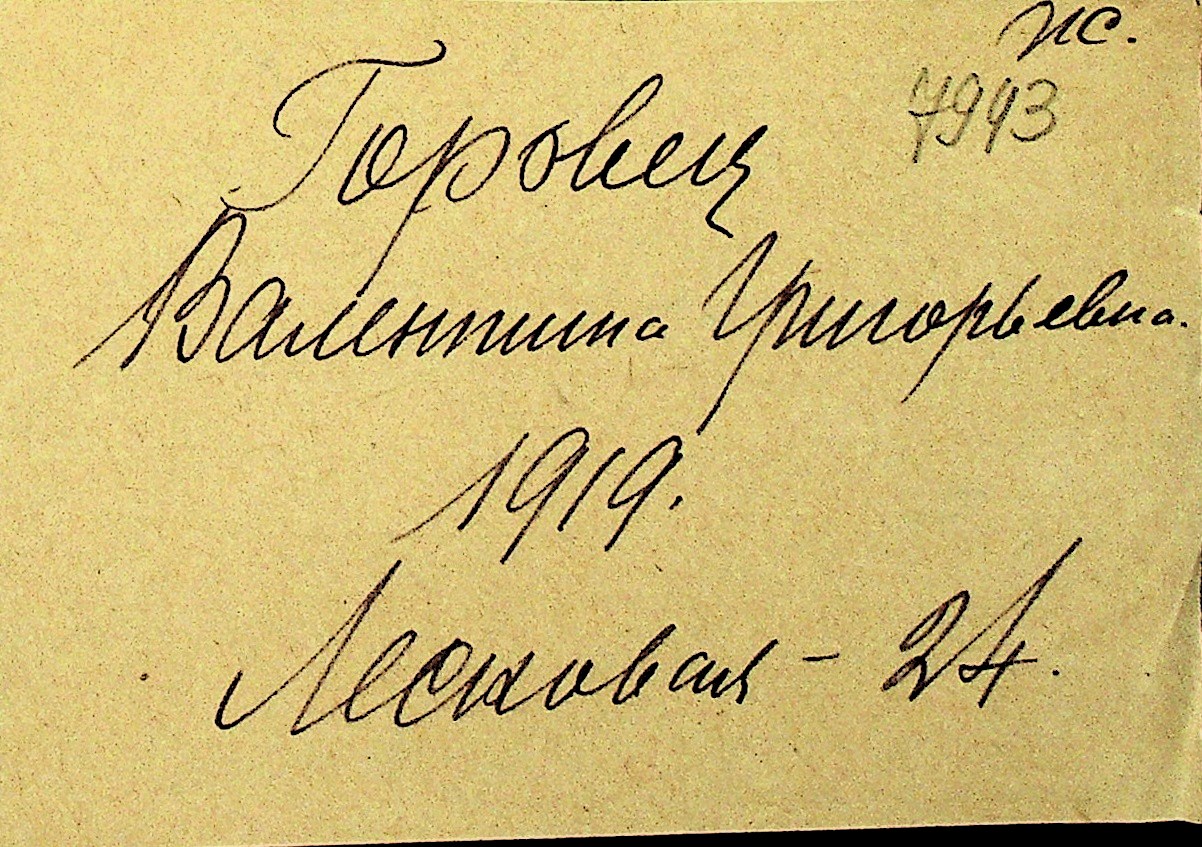 пс.
7943
Горовец
Валентина Григорьевна.
1919.
Лесковая - 24.